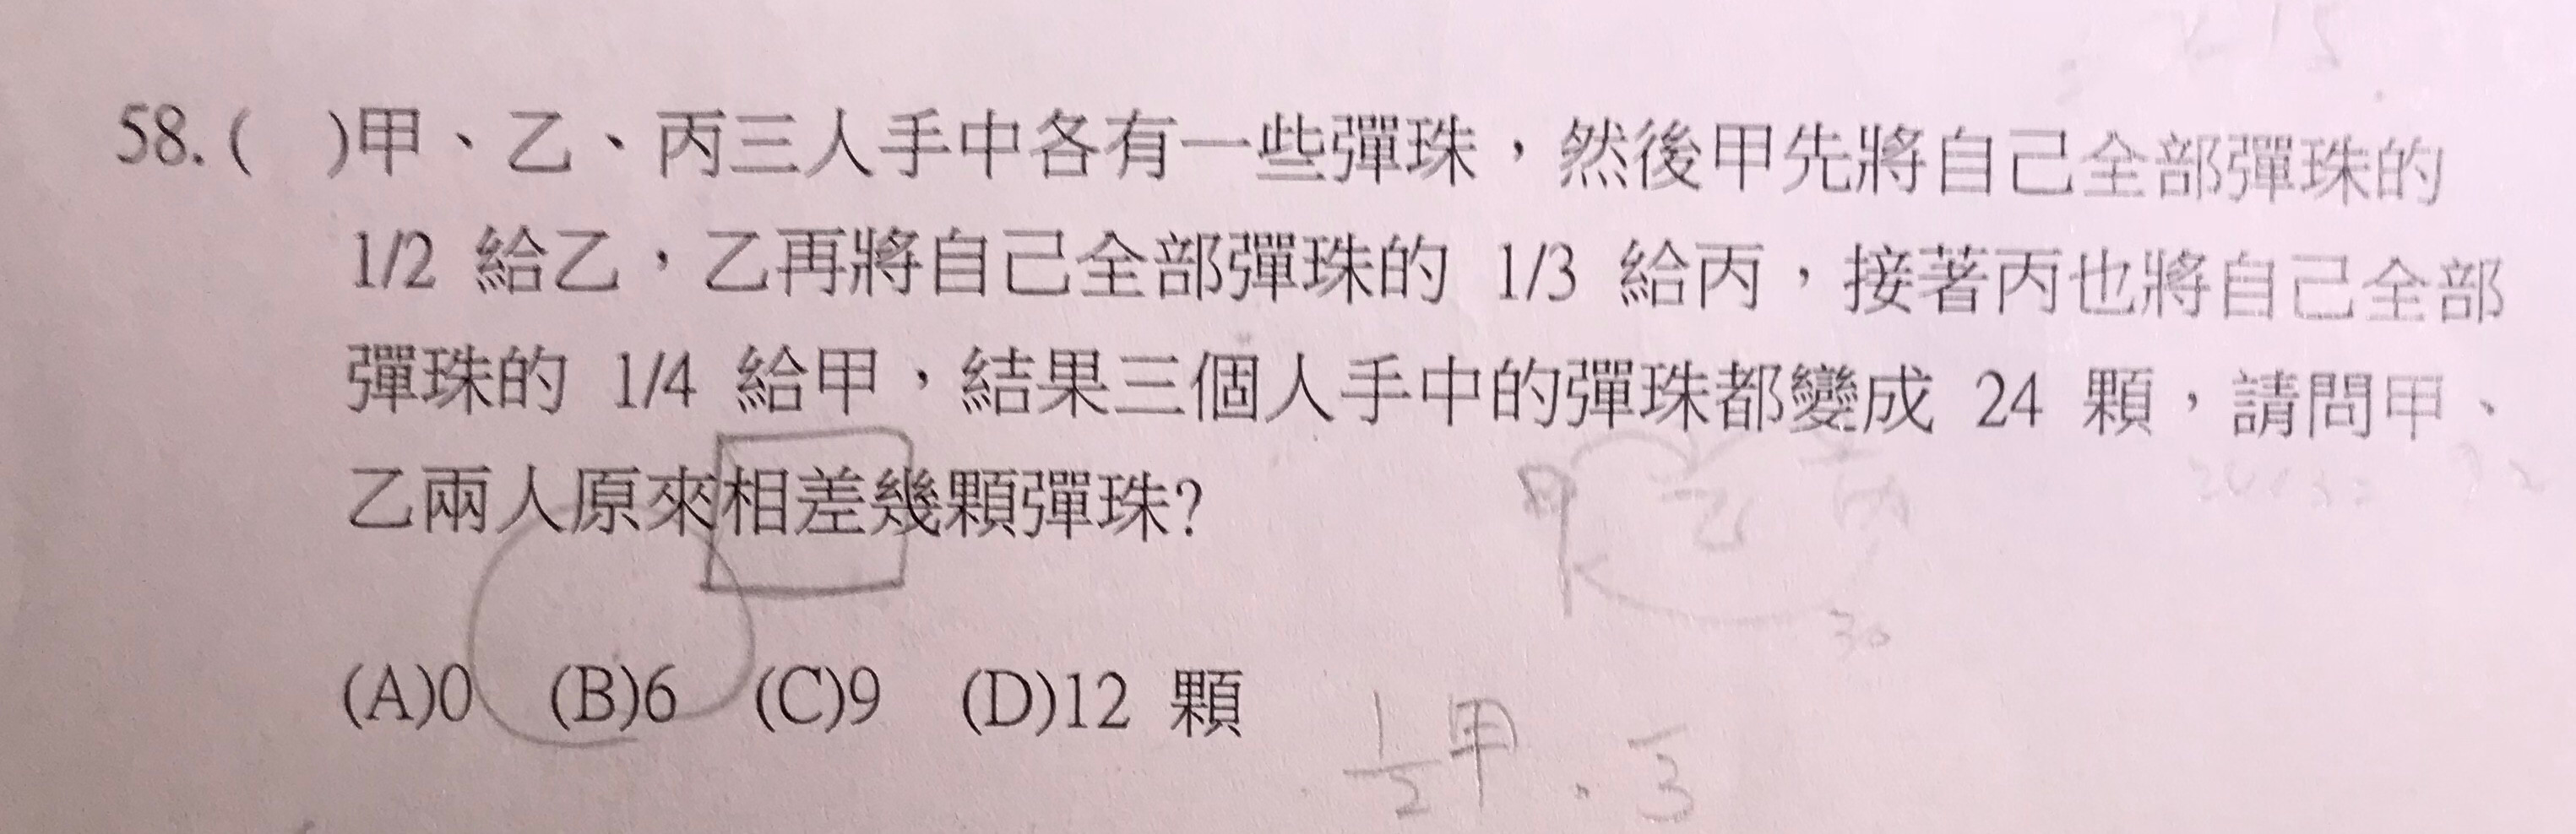 58. (    )甲、乙、丙三人手中各有一些彈珠，然後甲先將自己全部彈珠的
1/2 給乙，乙再將自己全部彈珠的 1/3 給丙，接著丙也將自己全部
彈珠的 1/4 給甲，結果三個人手中的彈珠都變成 24 顆，請問甲、
乙兩人原來相差幾顆彈珠?
甲 乙 丙
30
(A)0 (B)6 (C)9 (D)12 顆
1/2 甲
3